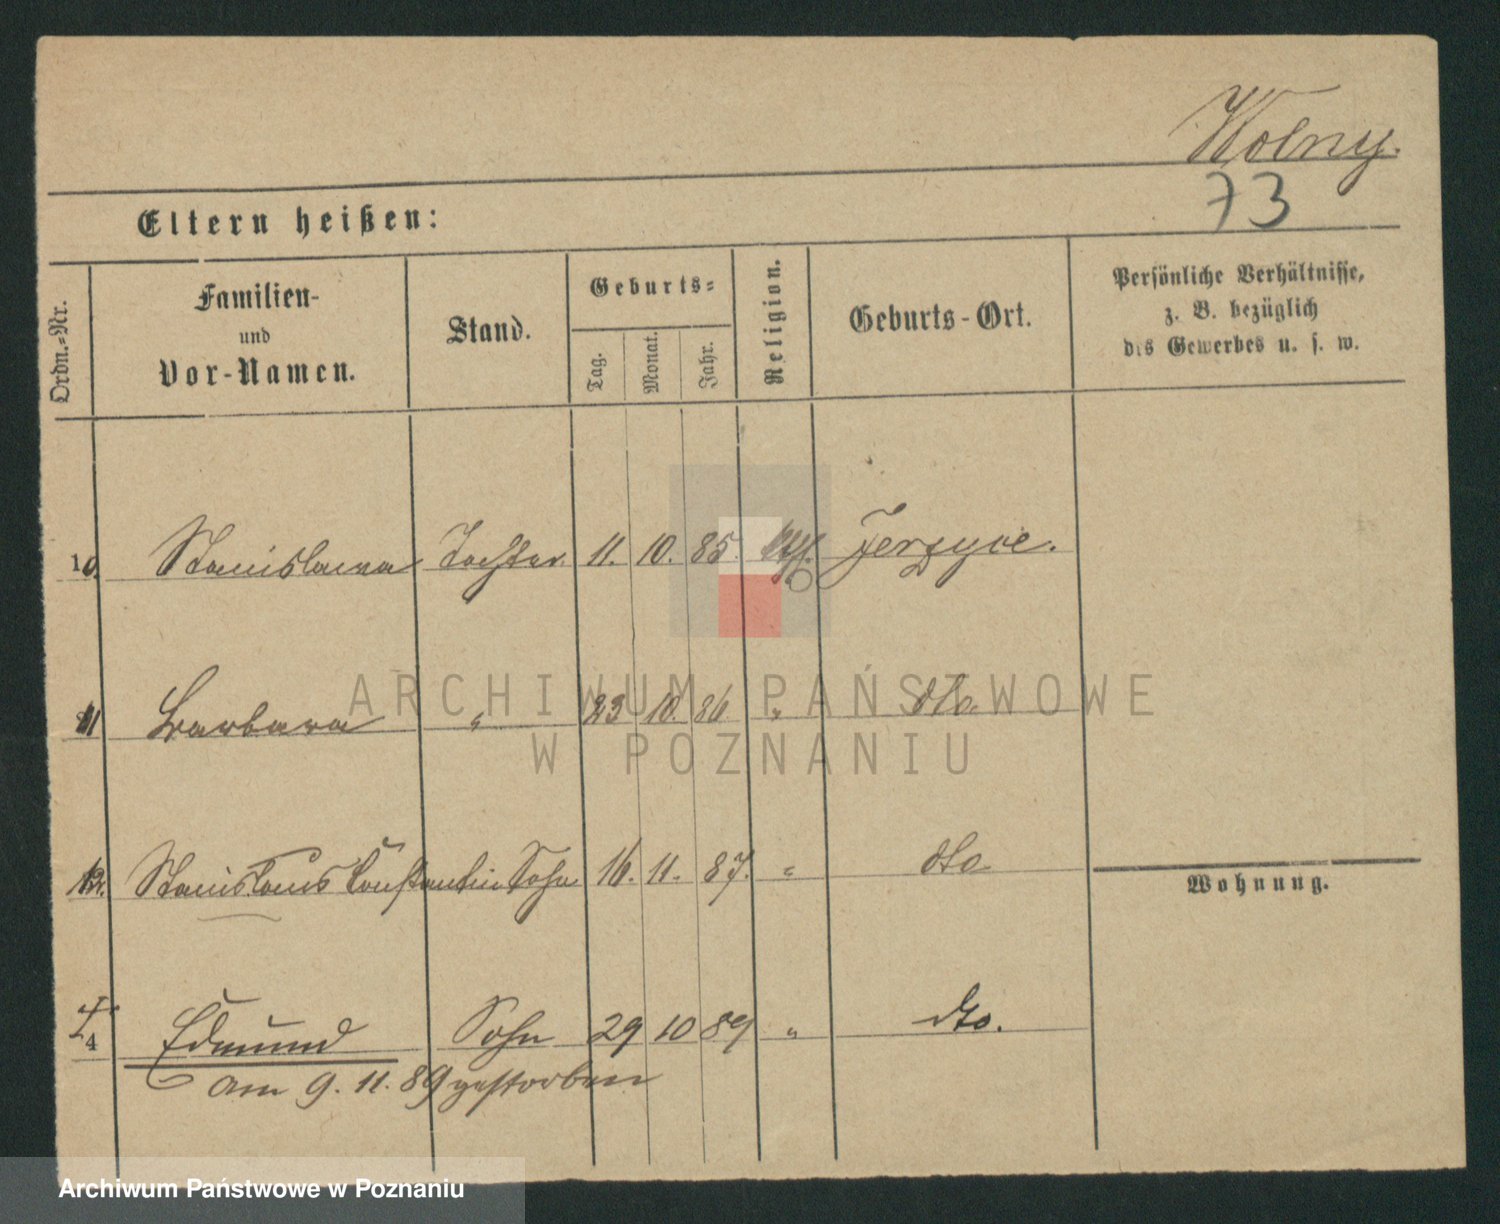 Wolny.
73
Eltern heißen:
Ordn.=Nr.
Familien-
und
Vor-Namen.
Stand.
Geburts=
Tag.
Monat.
Jahr.
Religion.
Geburts-Ort.
Persönliche Verhältnisse,
z. B. bezüglich
des Gewerbes u. s. w.
10. Stanislawa Tochter 11. 10. 85. kath. Jerzyce.
11 Barbara " 23 10. 86 " dto.
12. Stanislaus Constantin Sohn 16. 11. 87. " dto
Wohnung.
4 Edmund Sohn 29 10 89 " dto.
am 9. 11. 89 gestorben
ARCHIWUM PAŃSTWOWE
W POZNANIU
Archiwum Państwowe w Poznaniu